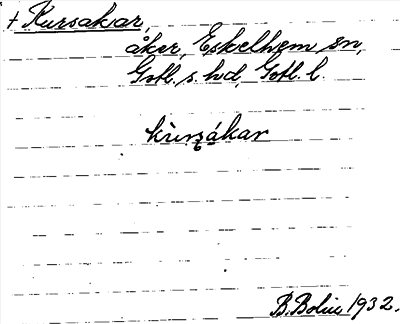 + Kursakar,
åker, Eskelhem sn,
Gotl. s. hd, Gotl. l.
kùrsákar
B. Bolin 1932.